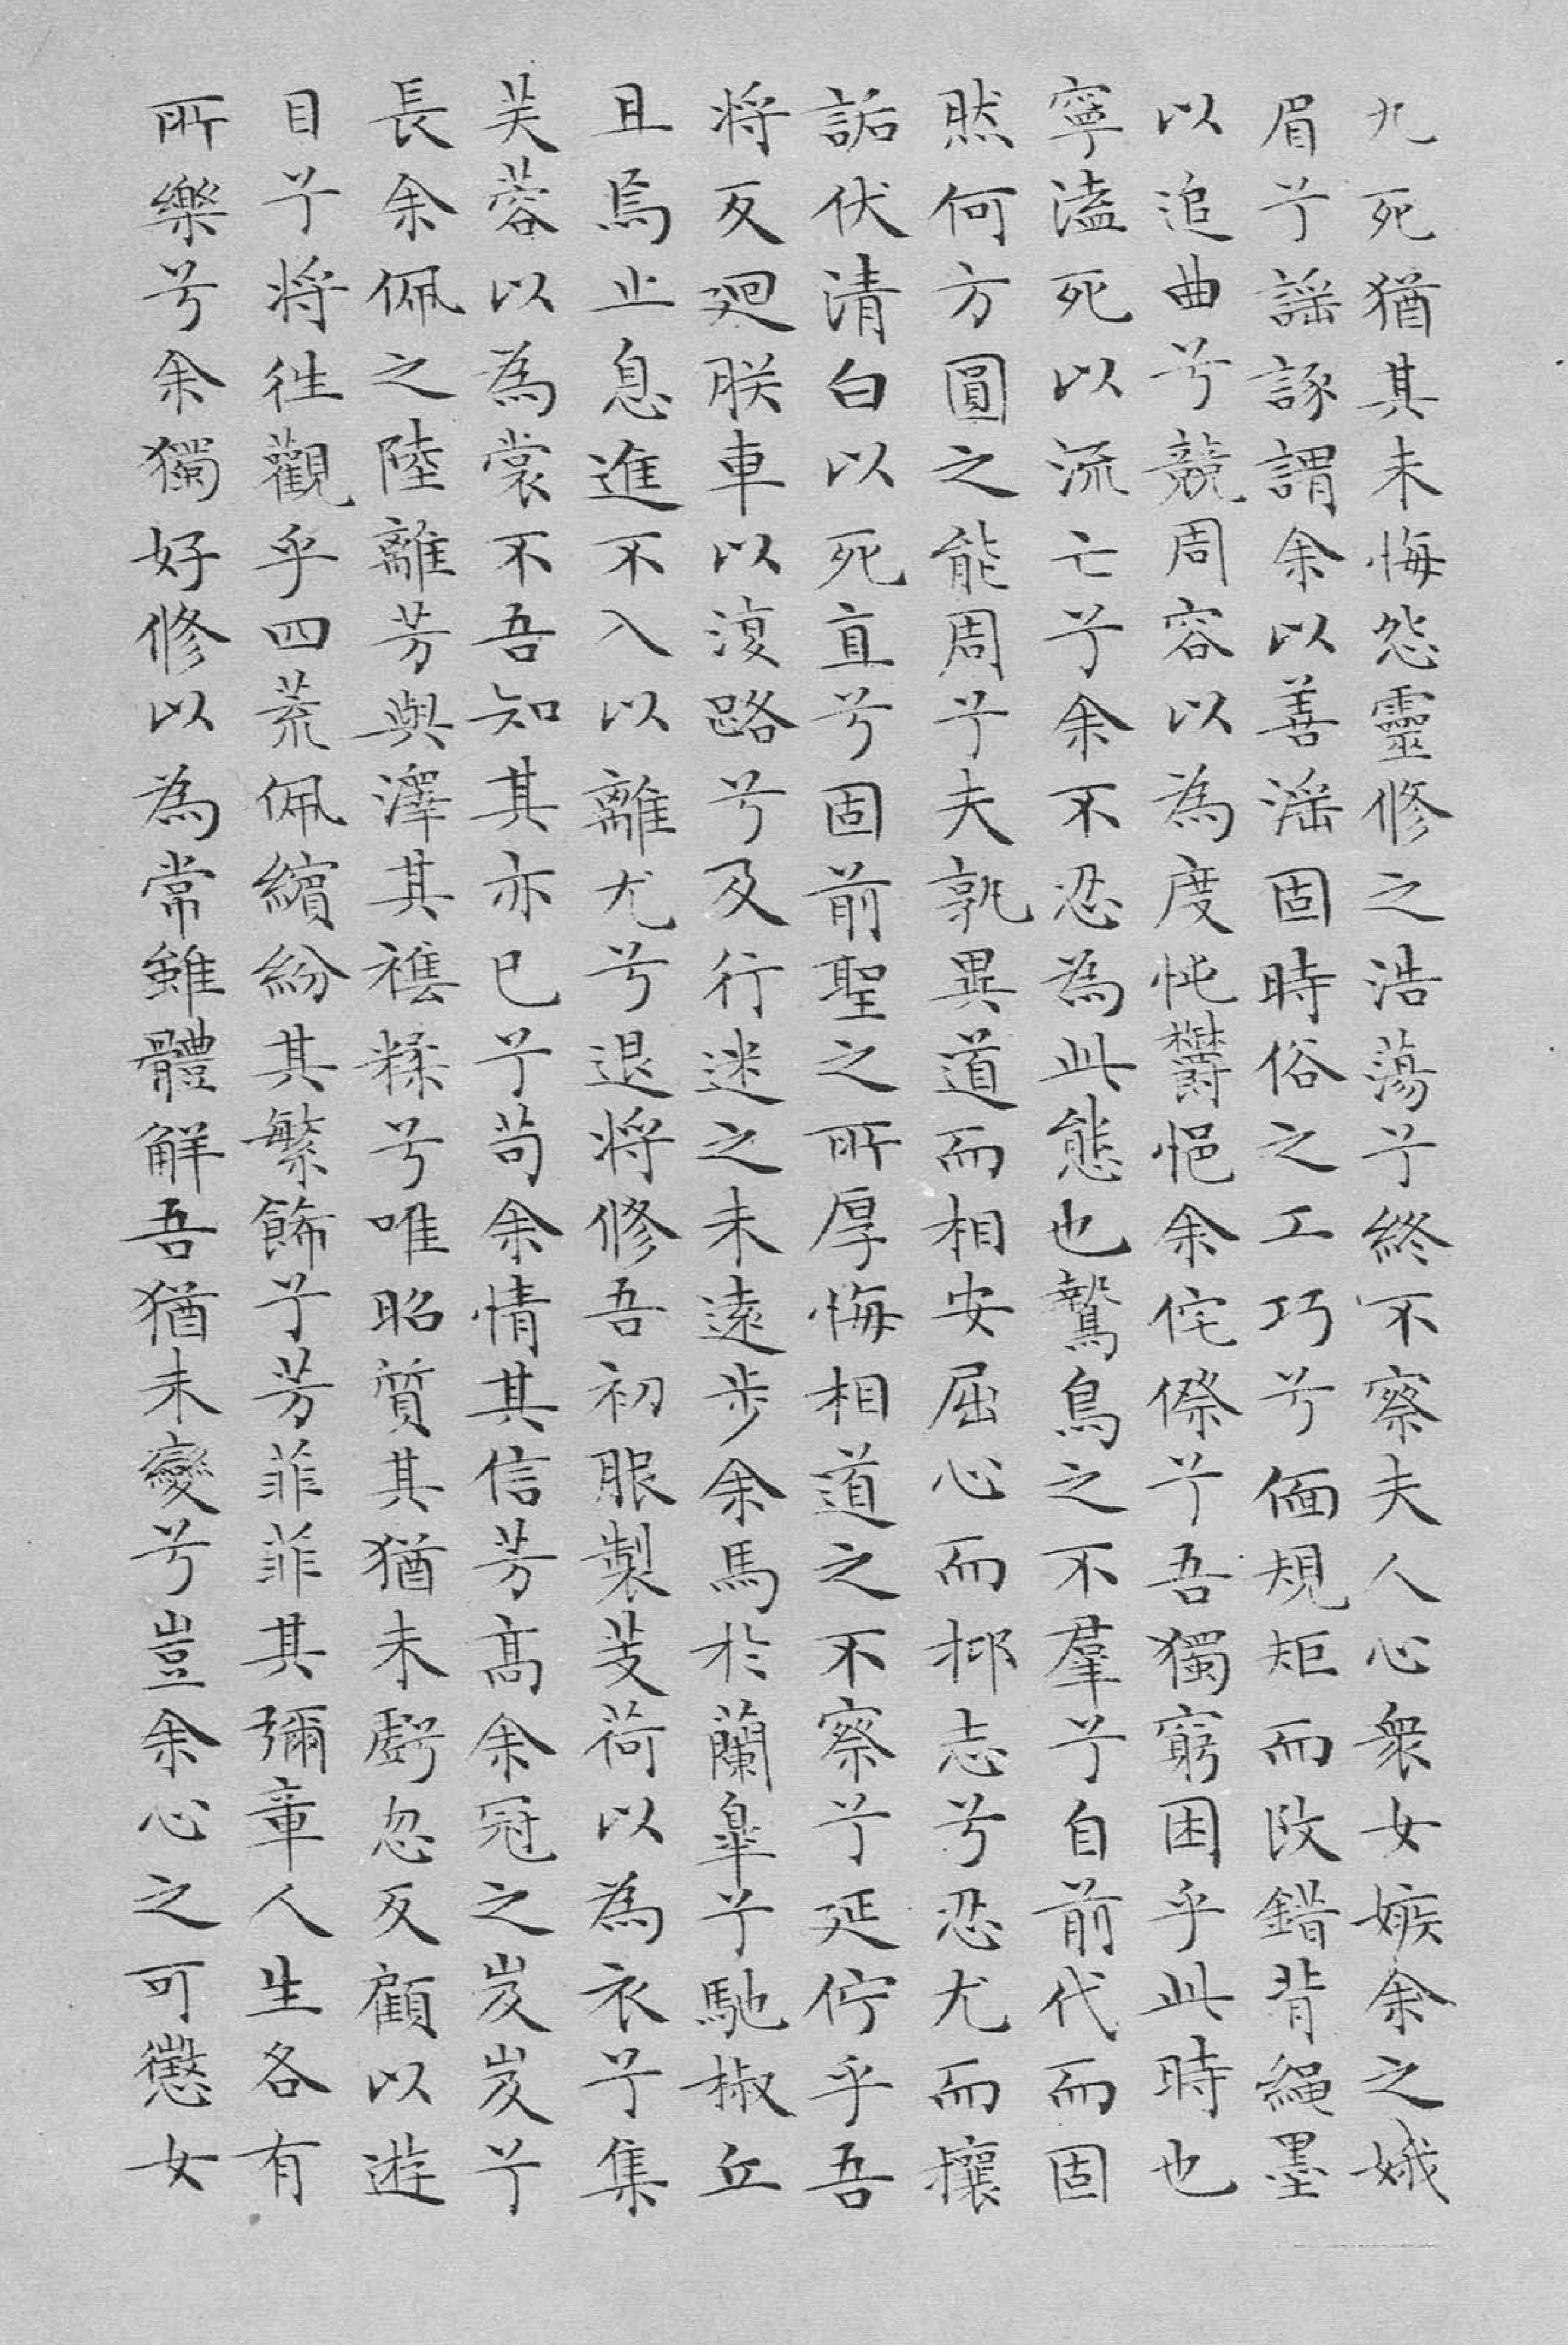 九死猶其未悔怨靈修之浩蕩兮終不察夫人心衆女嫉余之娥
眉兮謡諑謂余以善滛固時俗之工巧兮偭規矩而改錯背繩墨
以追曲兮競周容以為度忳欝悒余侘傺兮吾獨窮困乎此時也
寧溘死以流亡兮余不忍為此態也鷙鳥之不羣兮自前代而固
然何方圓之能周兮夫孰異道而相安屈心而抑志兮忍尤而攘
詬伏清白以死直兮固前聖之所厚悔相道之不察兮延佇乎吾
将反廻朕車以復路兮及行迷之未遠步余馬於蘭皐兮馳椒丘
且焉止息進不入以離尤兮退将修吾初服製芰荷以為衣兮集
芙蓉以為裳不吾知其亦已兮苟余情其信芳高余冠之岌岌兮
長余佩之陸離芳與澤其襍糅兮唯昭質其猶未虧忽反顧以遊
目兮将往觀乎四荒佩繽紛其繁飾兮芳菲菲其彌章人生各有
所樂兮余獨好修以為常雖體解吾猶未變兮豈余心之可懲女